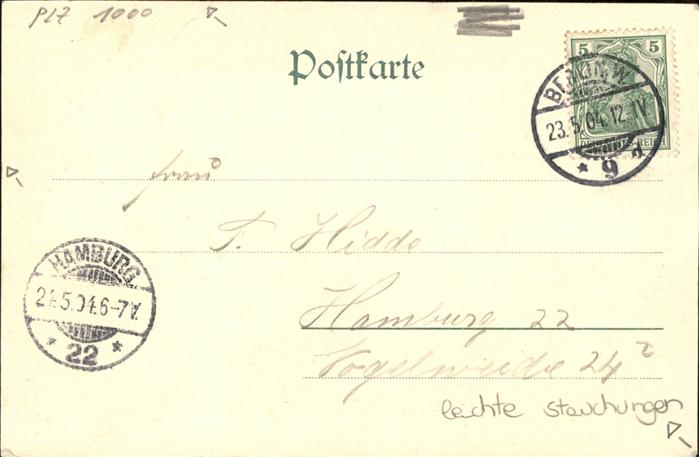 PLZ 1000
Postkarte
5 5
BERLIN. W.
23.5.04.12-1V.
* 9 d.
DEUTSCHES REICH
Frau
T. Hidde
HAMBURG
24.5.04.6-7V.
* 22 *
Hamburg 22
Vogelweide 24 2
leichte Stauchungen